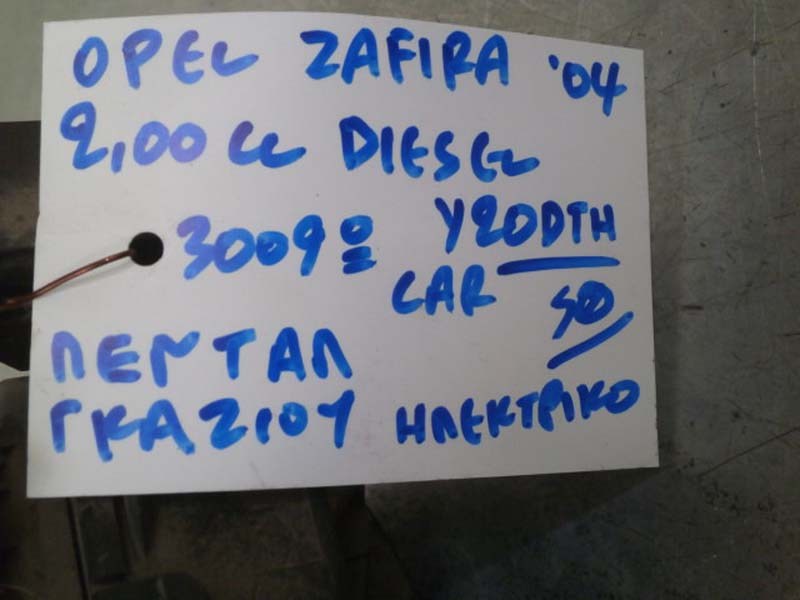 OPEL ZAFIRA '04
2,00 cc DIESEL
3009º Y20DTH
CAR 50
ΠΕΝΤΑΛ
ΓΚΑΖΙΟΥ ΗΛΕΚΤΡΙΚΟ